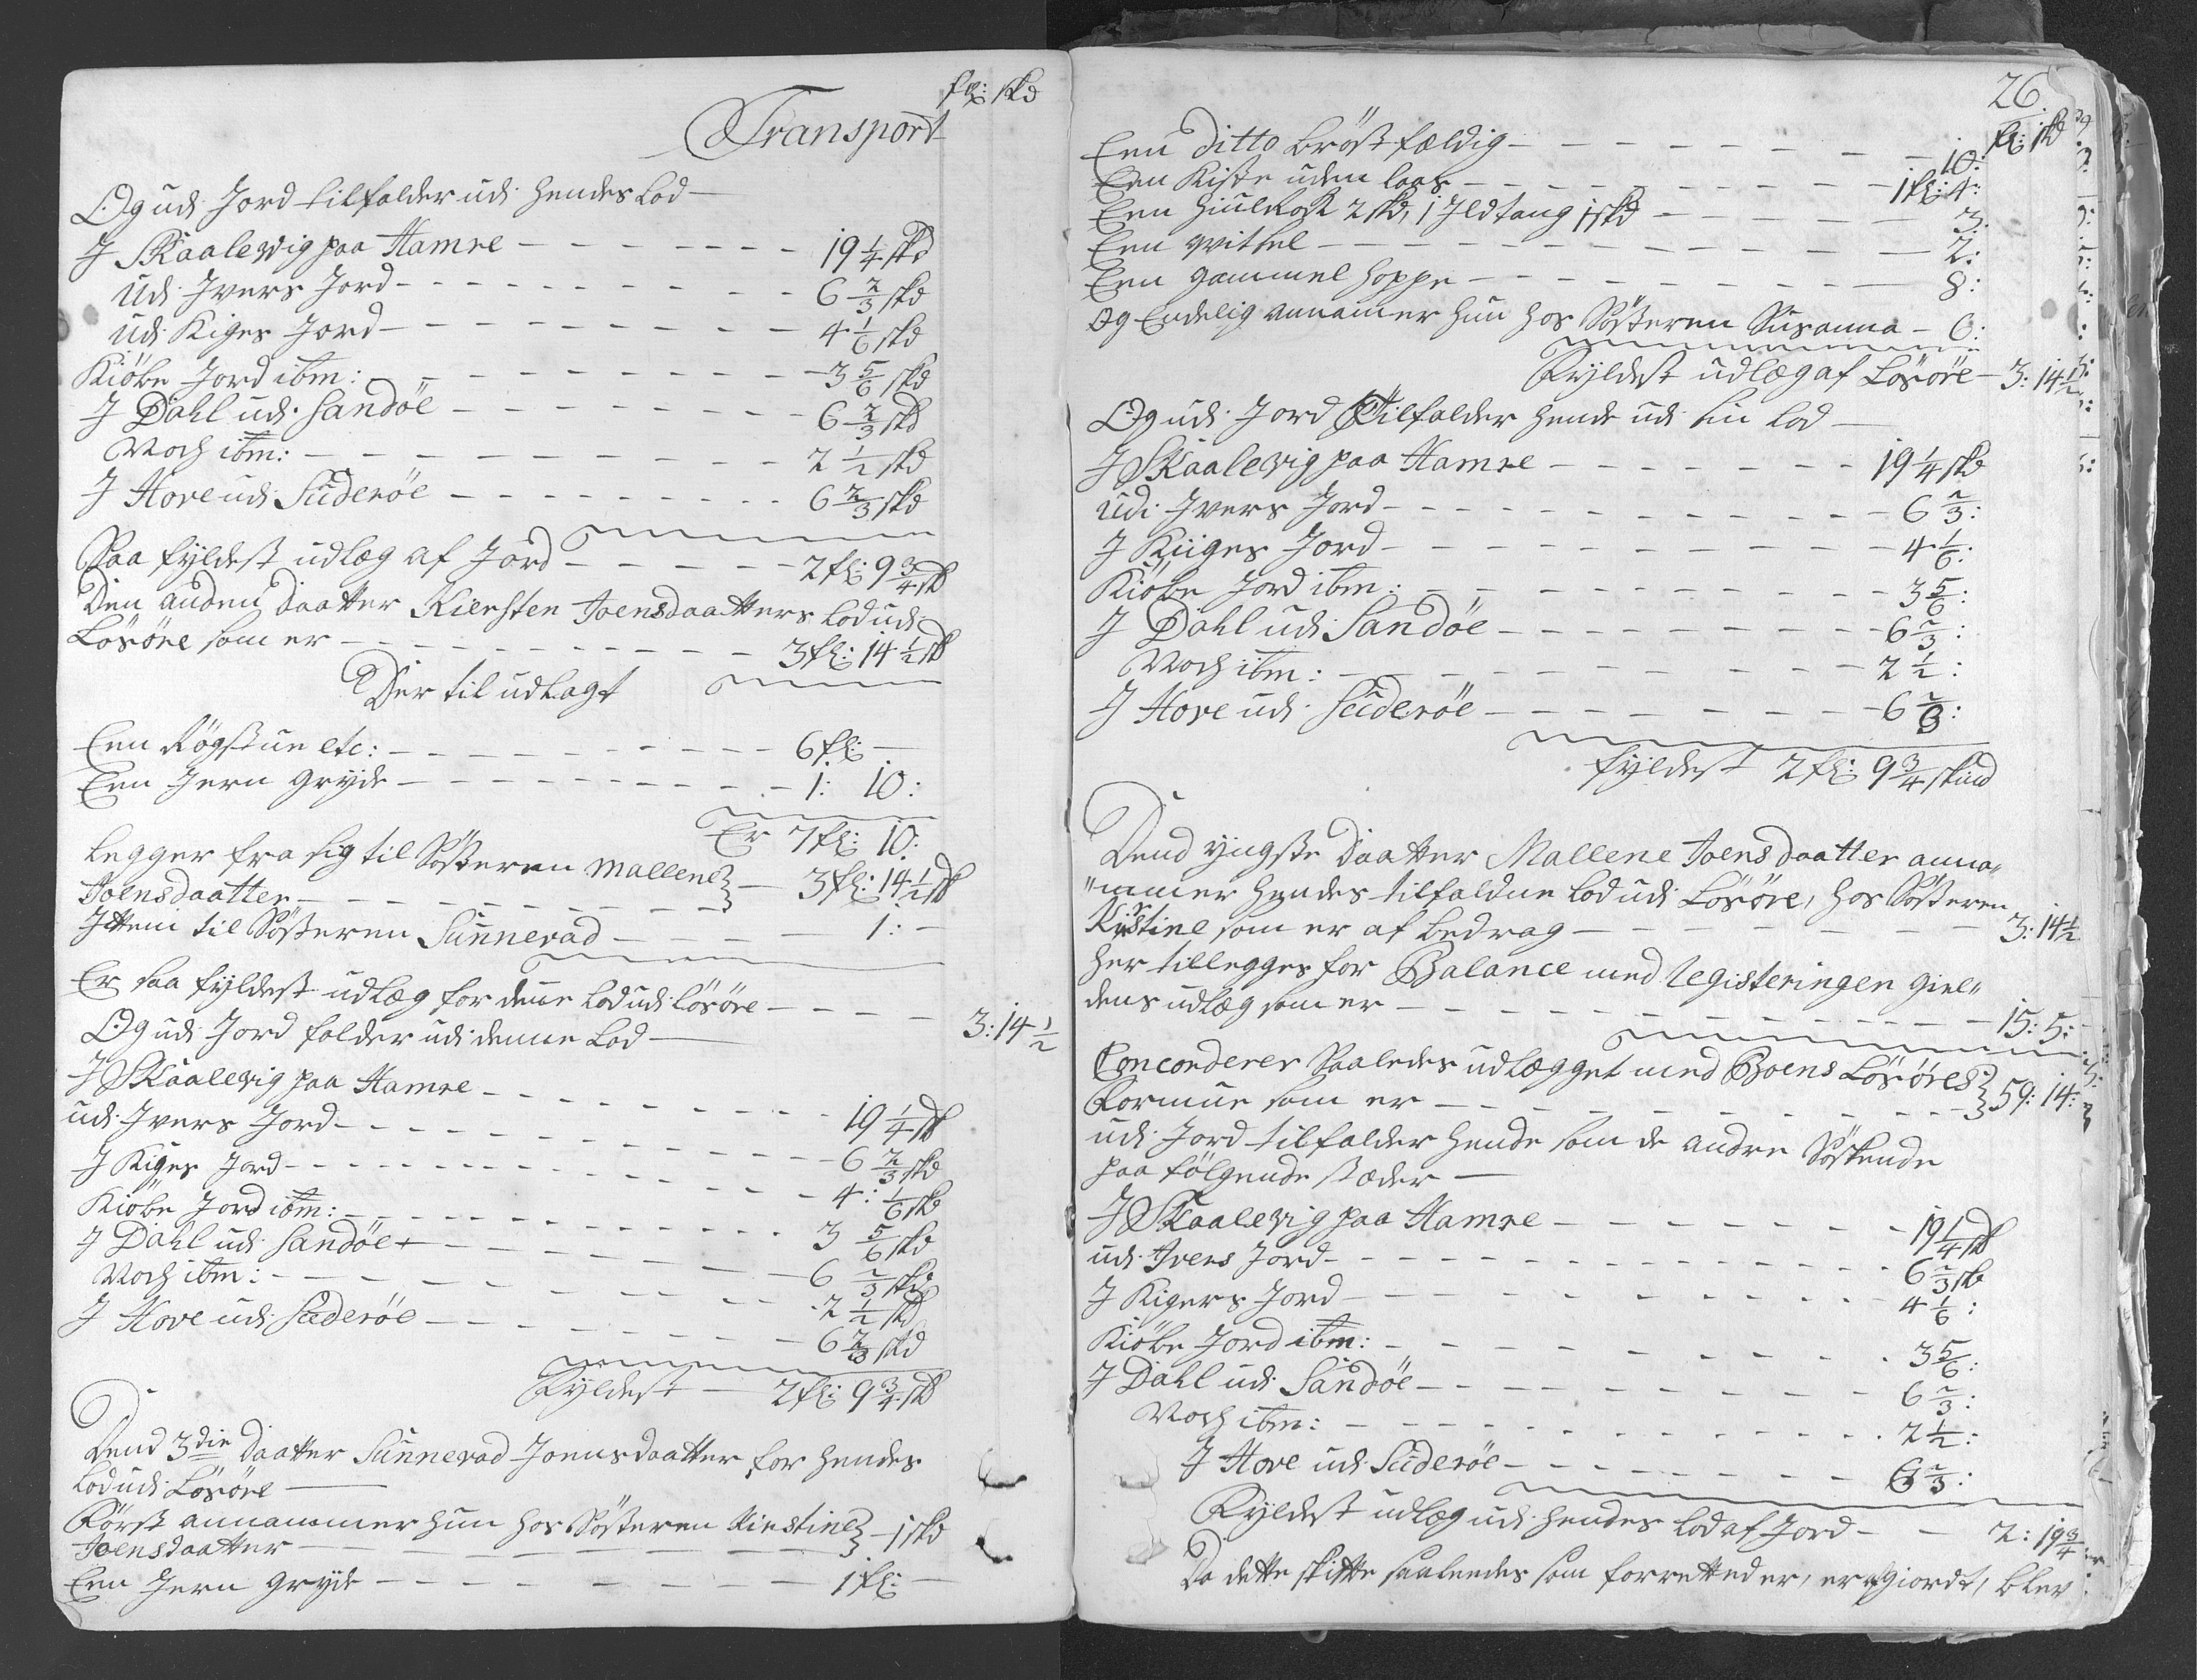 fℓ: skd
Transport
Og udi Jord tilfalder udi hendes Lod —
J Skaalevig paa Hamre — 19 1/4 skd
Udi Jvers Jord — 6 2/3 skd
udi Kiges Jord — 4 1/6 skd
Kiöbe Jord ibm: — 3 5/6 skd
J Dahl udi Sandöe — 6 2/3 skd
Noch ibm: — 2 1/2 skd
J Hove udi Süderöe — 6 2/3 skd
Saa fyldest udlæg af Jord — 2 fl: 9 3/4 sk
Den anden Daatter Kiersten Joensdaatters Lod udi
Lösöre som er — 3 fl: 14 1/2 sk
Der til udlagt
Een Rögstue etc: — 6 fl: —
Een Jern gryde — 1: 10:
Er 7 fl: 10:
legger fra sig til Sösteren Mallene
Joensdaatter — 3 fl: 14 1/2 sk
Jttem til Sösteren Sünnevad — 1: —
Er saa fyldest udlæg for denne Lod udi Lösöre — 3: 14 1/2
Og udi Jord falder udi denne Lod —
J Skaalevig paa Hamre — 19 1/4 sk
udi Jvers Jord — 6 2/3 skd
J Kiges Jord — 4: 1/6 skd
Kiöbe Jord ibm: — 3 5/6 skd
J Dahl udi Sandöe — 6 2/3 skd
Noch ibm: — 2 1/2 skd
J Hove udi Süderöe — 6 2/3 skd
Fyldest — 2 fl: 9 3/4 sk
Dend 3die Daatter Sünnevad Joensdaatter for hendes
Lod udi Lösöre —
Först annammer hun hos Sösteren Kiestine
Joensdaatter — 1 skd
Een Jern gryde — 1 fl: —
26
fl: skd
Een ditto bröstfældig — 10:
Een Kiste uden laas — 1 fl: 4:
Een Hiulrock 2 skd, 1 Jldtang 1 skd — 3:
Een — 2:
Een gammel Hoppe — 8:
Og Endelig annammer hun hos Sösteren Susanna — 6:
Fyldest udlæg af Lösöre — 3: 14 1/2
Og udi Jord Tilfalder hende udi sin Lod —
J Skaalevig paa Hamre — 19 1/4 skd
Udi Jvers Jord — 6 2/3:
J Kiiges Jord — 4 1/6:
Kiöbe Jord ibm: — 3 5/6:
J Dahl udi Sandöe — 6 2/3:
Noch ibm: — 2 1/2:
J Hove udi Süderöe — 6 2/3:
fyldest 2 fl: 9 3/4 skind
Dend yngste Daatter Mallene Joensdaatter anna„
„mmer hendes tilfaldne Lod udi Lösöre, hos Sösteren
Kirstine som er af bedrag — 3: 14 1/2
her tillegges for Balance med Registeringen giel„
dens udlæg som er — 15: 5:
Concorderer Saaledes udlægget med Boens Lösöres
Formue som er — 59: 14:
udi Jord tilfalder hende som de andre Söskende
paa fölgende stæder —
J Skaalevig paa Hamre — 19 1/4 sk
udi Jvers Jord — 6 2/3 sk
J Kigers Jord — 4 1/6:
Kiöbe Jord ibm: — 3 5/6:
J Dahl udi Sandöe — 6 2/3:
Noch ibm: — 2 1/2:
J Hove udi Süderöe — 6 2/3:
Fyldest udlæg udi hendes Lod af Jord — 2: 19 3/4
Da dette skifte saaleedes som forretted er, er giordt, blev